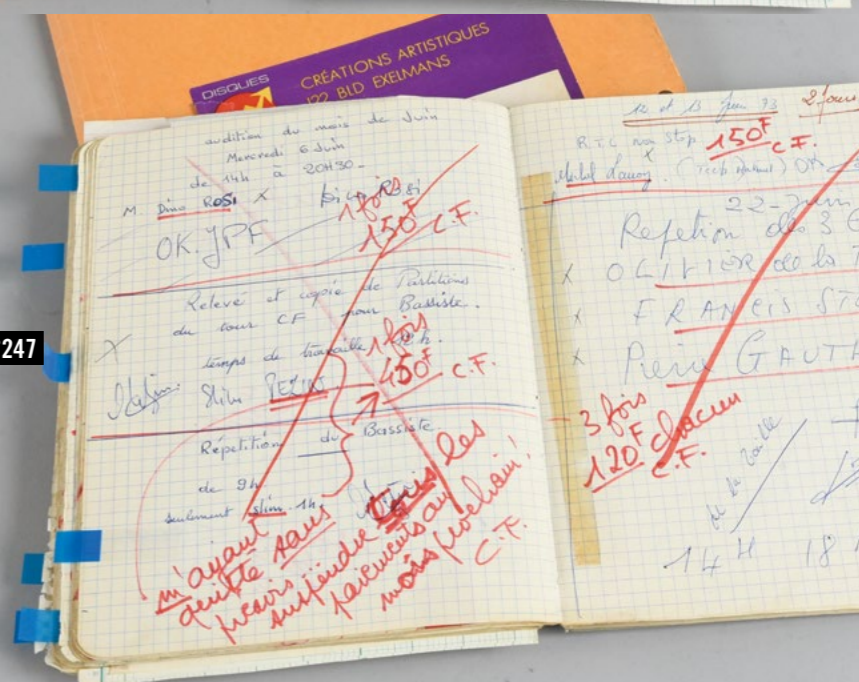 DISQUES
CRÉATIONS ARTISTIQUES
122 BLD EXELMANS
247
audition du mois de Juin
Mercredi 6 Juin
de 14h à 20H30-
M. Dino ROSI X
1 fois
150F C.F.
OK. JPF
Relevé et copie de Partitions
du tour CF pour Bassiste.
X temps de travaille
Slim PEZIN
1 fois
450F C.F.
Répétition du Bassiste
de 9h
seulement slim 1h
m'ayant
quitté sans
préavis
suspendre les
paiements au
mois prochain!
C.F.
12 et 13 Juin 73 2 fois
R.T.L non stop 150F C.F.
X
OK
22-Juin
Repetion des 3
X OLIVIER de la
X FRANCIS
X Pierre GAUTH
3 fois
120F chacun
C.F.
de la
14H 18